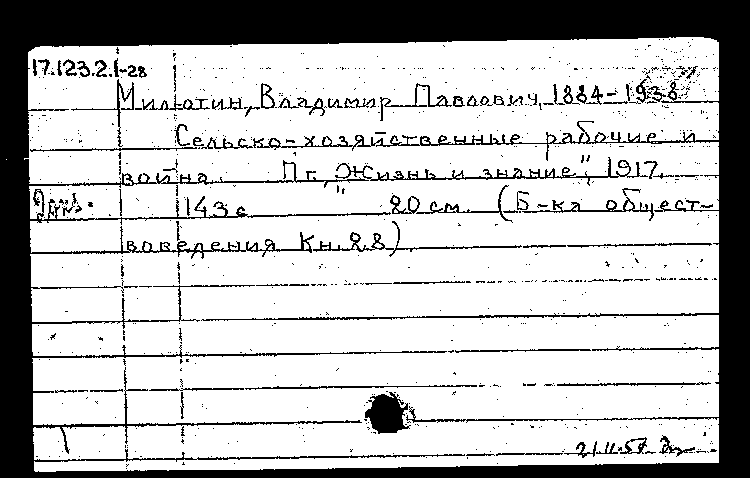 17.123.2.1-28
Милютин, Владимир Павлович, 1884-1938
Сельско-хозяйственные рабочие и
война. Пг., "Жизнь и знание", 1917.
143 с. 20 см. (Б-ка общест-
воведения Кн. 28).
21.11.57.